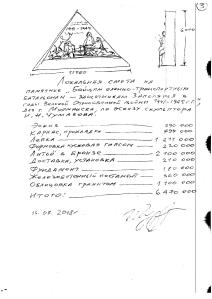 3
1941-1945
Локальная смета на
памятник "Бойцам оленно-транспортных
батальонов — защитникам Заполярья в
годы Великой Отечественной войны 1941-1945 г.г."
для г. Мурманска, по эскизу скульптора
И.Н. Чумакова.
Эскиз 250 000
Каркас, прокладки
Лепка
Формовка гипсом 220 000
Литьё в бронзе 2 400 000
Доставка, установка 210 000
Фундамент 180 000
Железобетонный постамент 360 000
Облицовка гранитом 1 100 000
Итого: 6 470 000
16.08.2018г